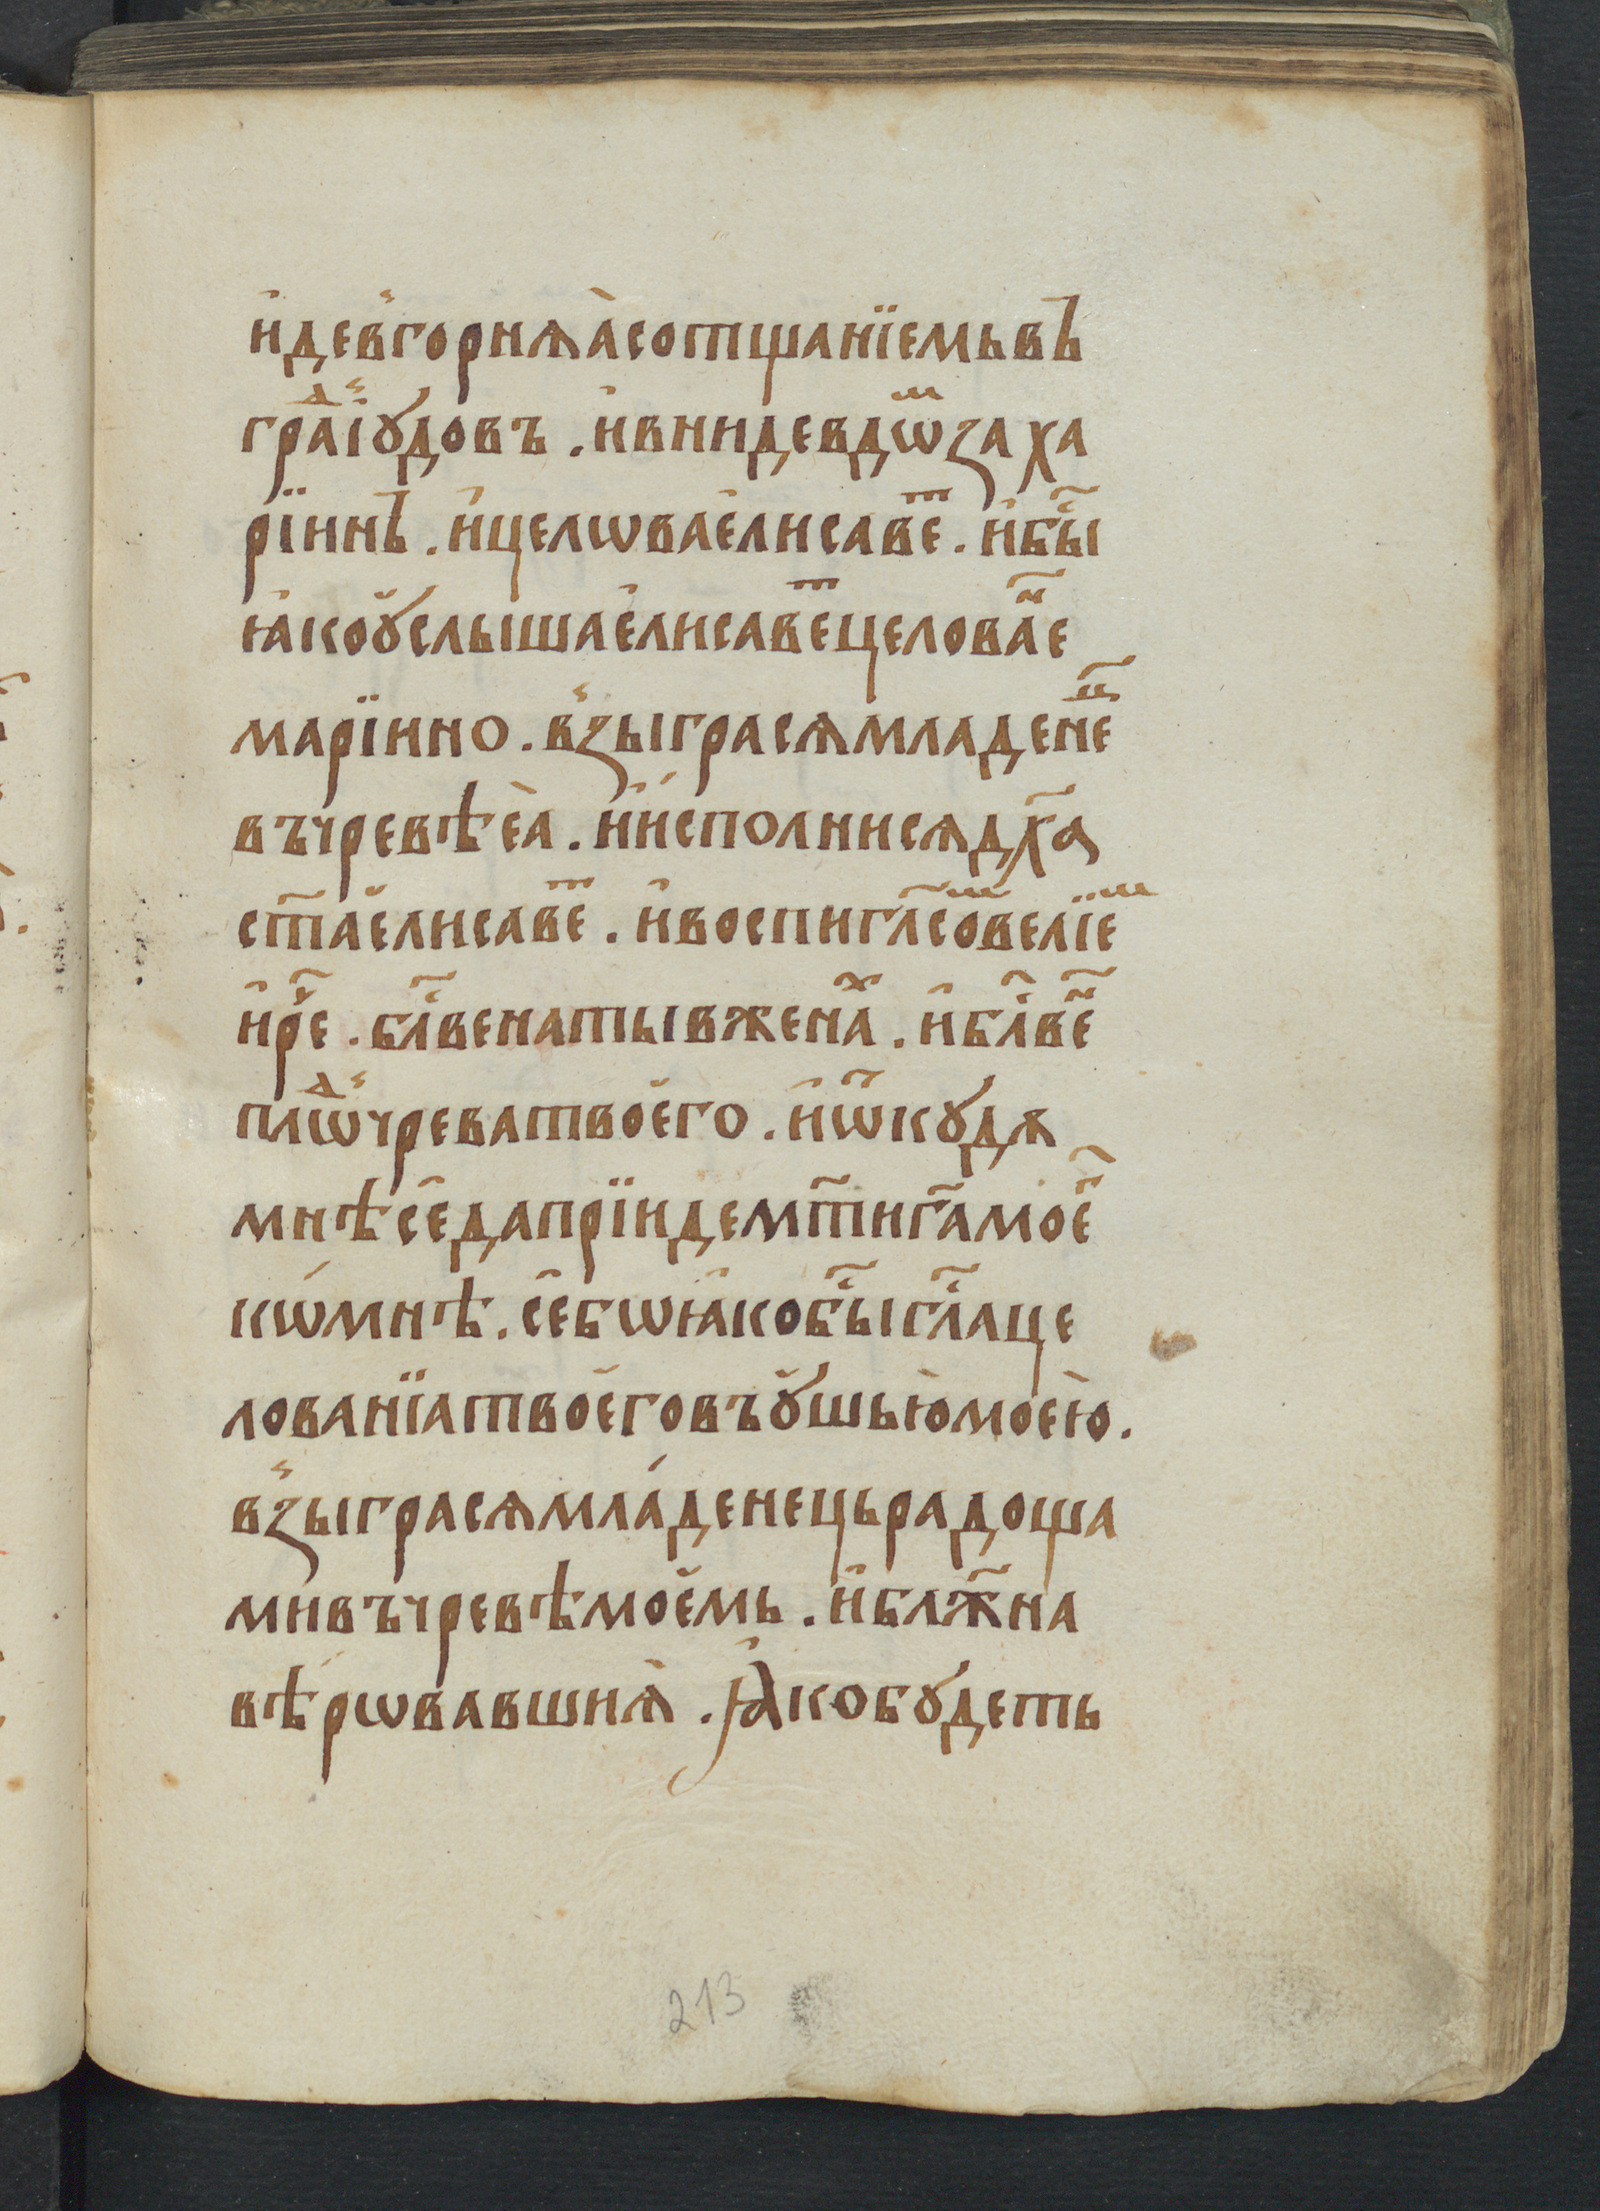 и҆де в горнѧꙗ со тщанїемь въ
граⷣ іꙋдовъ . и҆ вниде в дѡⷨ заха
рїинъ . и҆ целѡва е҆лисавеⷮ . и҆ бы҇
ꙗ҆ко ᲂу҆слыша е҆лисавеⷮ целоваⷩ҇е
марїино . взыграсѧ младенеⷰ҇
въ чревѣ еа̀ . и҆ и҆сполнисѧ дх҃а
ст҃а е҆лисавеⷮ . и҆ воспи гл҃соⷨ велїеⷨ
и҆ реⷱ҇ . блⷭ҇вена ты в женаⷯ . и҆ блⷭ҇веⷩ҇
плѡⷣ чрева твое҆го . и҆ ѿкꙋдѧ
мнѣ се҆ да прїиде мт҃и гⷭ҇а мое҆г҇
кѡ́ мнѣ . се҆ бѡ ꙗ҆ко быⷭ҇ гл҃а це
лованїа твое҆го въ ᲂу҆шью̀ моею̀ .
взыграсѧ мла́денець радоща
ми въ чревѣ мое҆мь . и҆ блж҃на
вѣ́рѡвавшиѧ̀ . ꙗ҆ко бꙋдеть
213